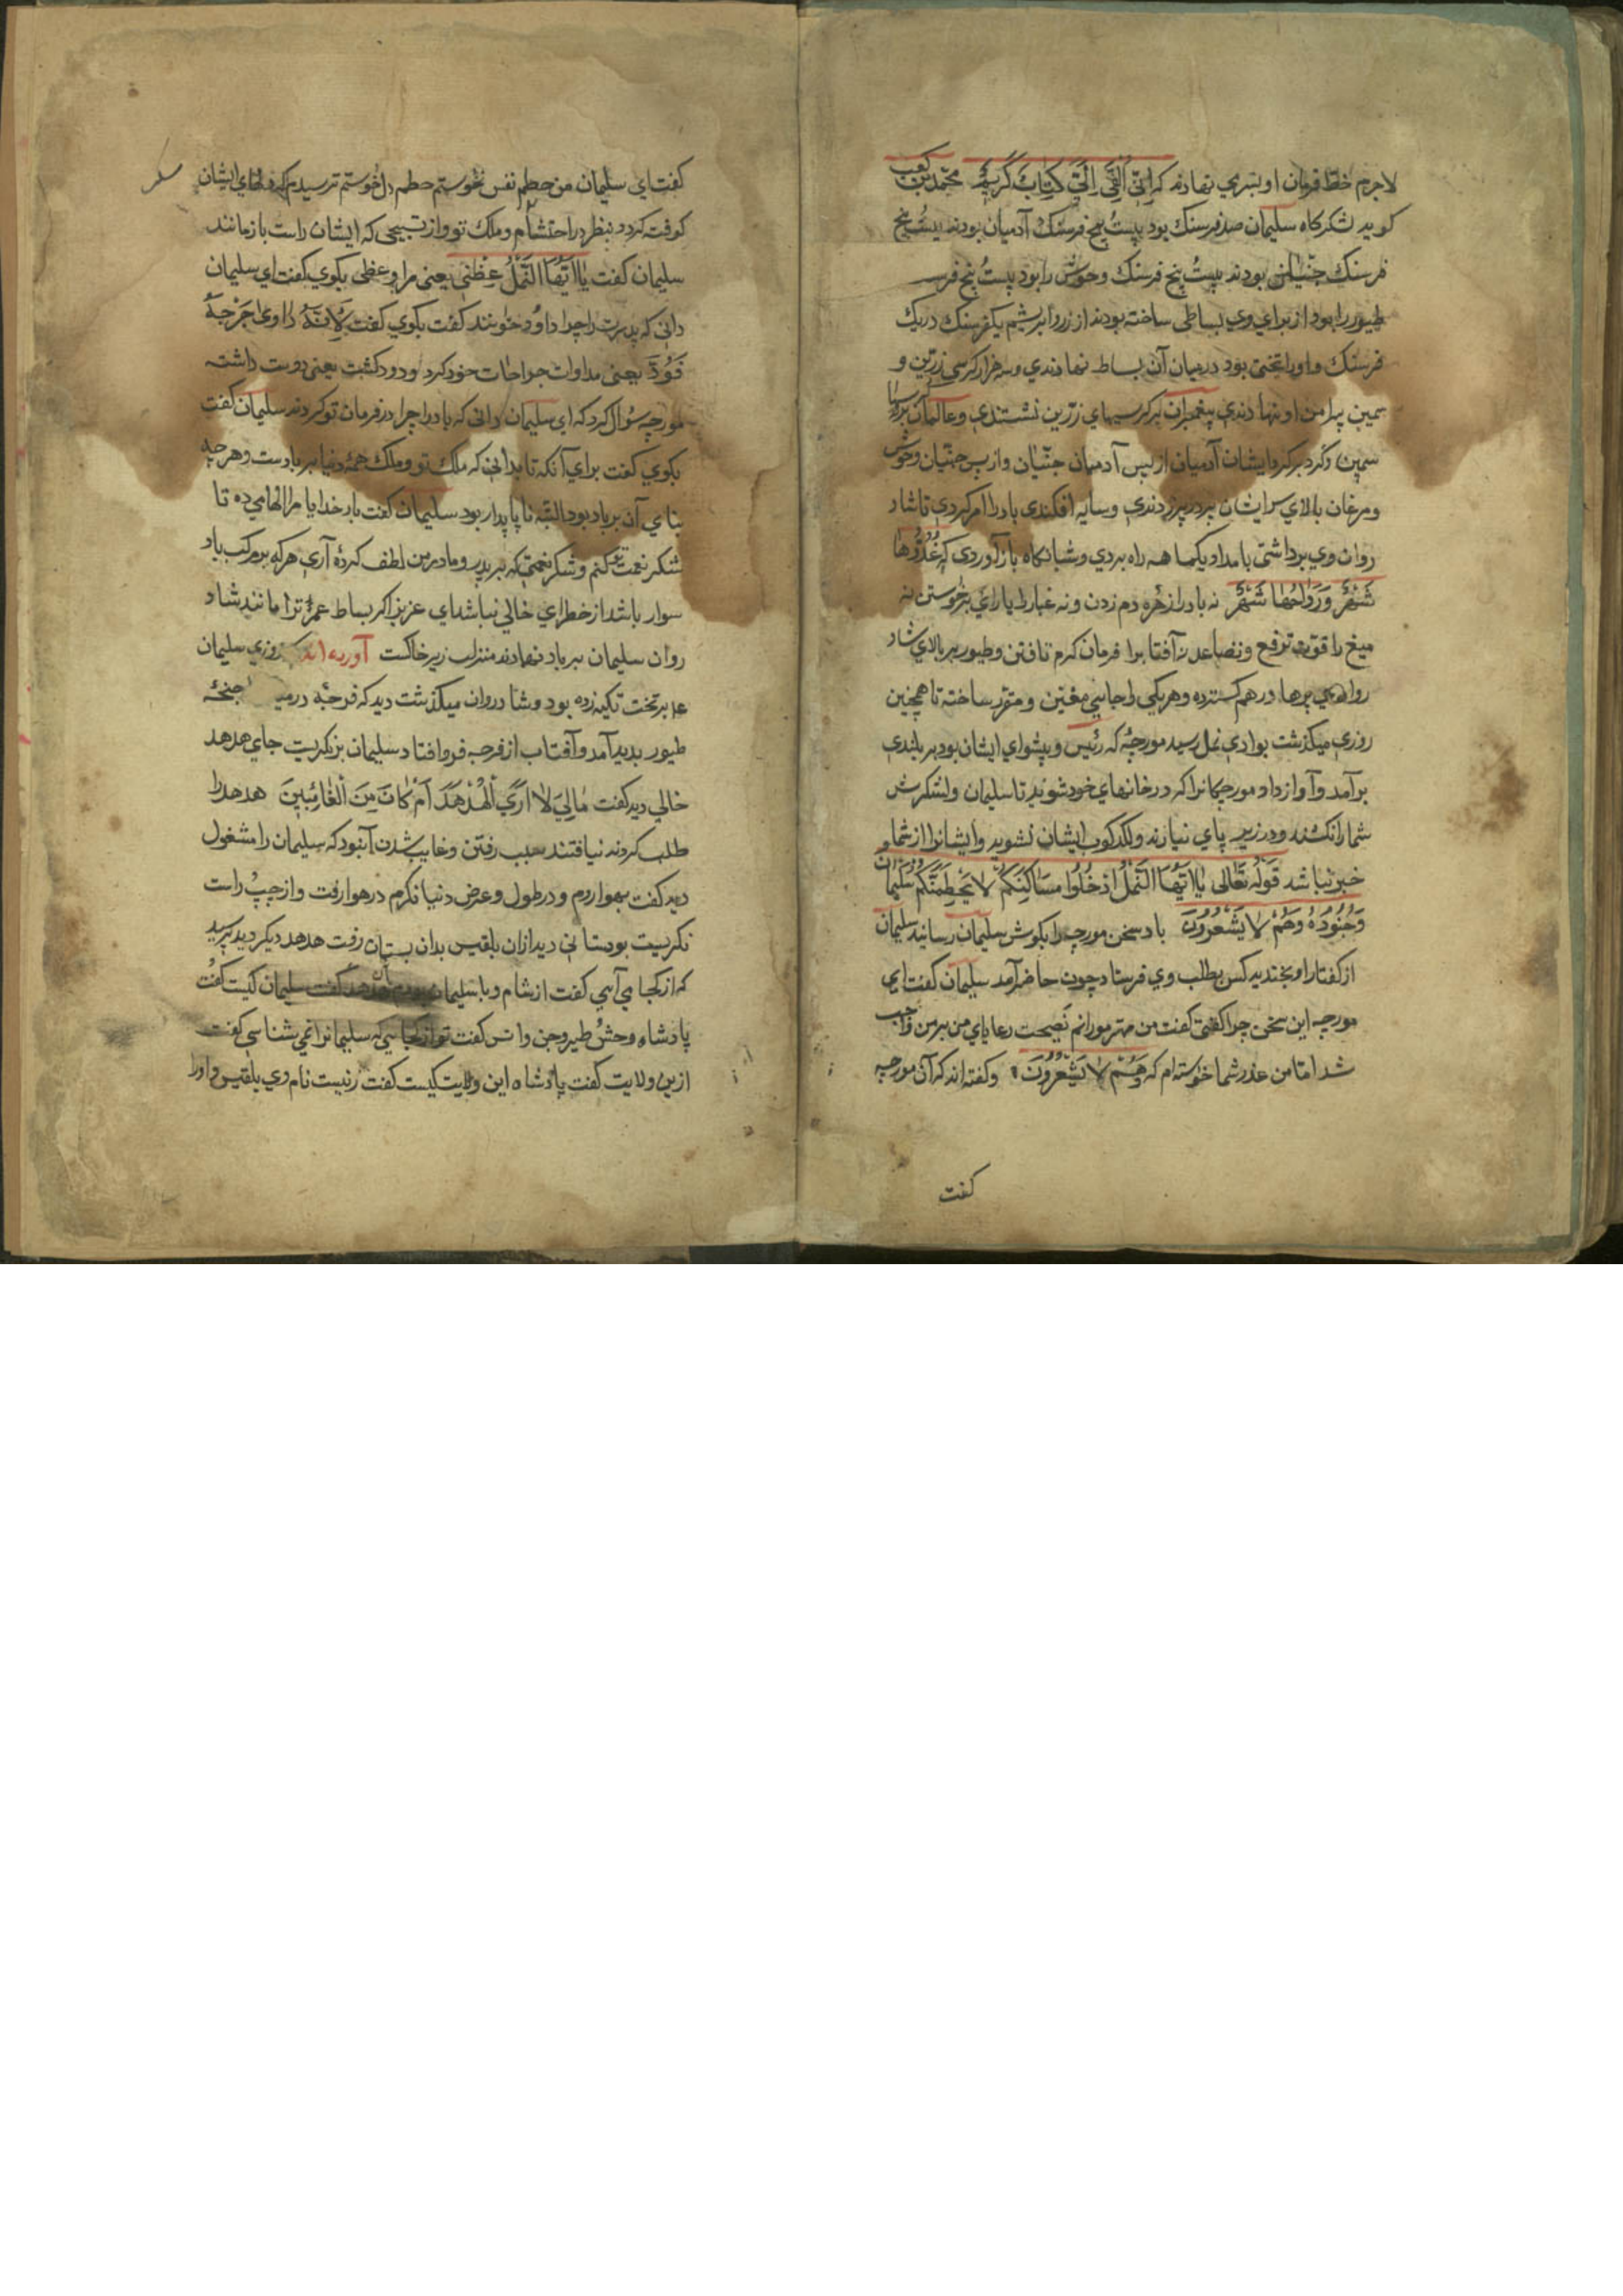 لاجرم خطّ فرمان او بسری نهادند که اِنّی اُلقِیَ اِلَیَّ کِتابٌ کَریمٌ محمّد بن کعب
کوید لشکرکاه سلیمان صد فرسنک بود بیست پنج فرسنک آدمیان بودند بیست پنج
فرسنک جنّیان بودند بیست پنج فرسنک وحوش را بود بیست پنج فرسـ
طیور را بود از برای وی بساطی ساخته بودند از زر و ابریشم یکفرسنک در یک
فرسنک و او را تختی بود در میان آن بساط نهادندی و سه هزار کرسی زرّین و
سیمین پیرامن او بنهادندی پیغمبران بر کرسیهای زرّین نشستندی و عالمان بر کرسیهای
سیمین و کرد بر کرد ایشان آدمیان از پس آدمیان جنّیان و از پس جنّیان وحوش
و مرغان بالای سر ایشان پر در پر زدندی و سایه افکندی باد را امر کردی تا شاد
روان وی برداشتی بامداد یکماهه راه بردی و شبانکاه باز آوردی که غُدُوُّها
شَهْرٌ وَرَواحُها شَهْرٌ نه باد را زهره دم زدن و نه غبار را یارای برخوستن نه
میغ را قوّت ترفع و تصاعد نه آفتابرا فرمان کرم تافتن و طیور بر بالای شاد
روان وی پرها در هم کسترده و هر یکی را جایی معیّن و مقرّر ساخته تا همچنین
روزی میکذشت بوادی نمل رسید مورچهٔ که رئیس و پیشوای ایشان بود بر بلندی
برآمد و آواز داد مورچکانرا که در خانهای خود شوید تا سلیمان و لشکرش
شما را نکشند و در زیر پای نیارند و لکدکوب ایشان نشوید و ایشانرا از شما
خبر نباشد قَوْلُه تَعَالی یٰا اَیُّهَا النَّمْلُ ادْخُلُوا مَسَاکِنَکُمْ لا یَحْطِمَنَّکُمْ سُلَیْمَانُ
وَجُنُودُهُ وَهُمْ لا یَشْعُرُونَ باد سخن مورچه را بکوش سلیمان رسانید سلیمان
از کفتار او بخندید کس بطلب وی فرستاد چون حاضر آمد سلیمان کفت ای
مورچه این سخن چرا کفتی کفت من مهتر مورانم نصیحت رعایای من بر من واجب
شد امّا من عذر شما خوسته ام که وَهُمْ لا یَشْعُرُونَ و کفته اند که آن مورچه
کفت
کفت ای سلیمان من حطم نفس نخوستم حطم دل خوستم ترسیدم که دلهای ایشان
کوفته کردد بنظر در احتشام و ملک تو و از تسبیحی که ایشان راست باز مانند
سلیمان کفت یٰا اَیُّهَا النَّمْلُ عِظْنی یعنی مرا وعظی بکوی کفت ای سلیمان
دانی که پدرت را چرا داوُد خوانند کفت بکوی کفت لِاَنَّهُ دَاوٰی جَرْحَهُ
فَوُدَّ یعنی مداوات جراحات خود کرد و دود کشت یعنی دوست داشته
مورچه سؤال کرد که ای سلیمان دانی که باد را چرا در فرمان تو کردند سلیمان کفت
بکوی کفت برای آنکه تا بدانی که ملک تو و ملک همهٔ دنیا بر بادست و هر چه
بنای آن بر باد بود البتّه ناپایدار بود سلیمان کفت بار خدایا مرا الهامی ده تا
شکر نعمت تو کنم و شکر نعمتی که بر پدر و مادر من لطف کردهٔ آری هر که بر مرکب باد
سوار باشد از خطرای خالی نباشد ای عزیز اکر بساط عمر ترا مانند شاد
روان سلیمان بر باد نهادند منزلت زیر خاکست آورده اند که روزی سلیمان
ع م بر تخت تکیه زده بود و شادروان میکذشت دید که فرجهٔ در میـ اجنحهٔ
طیور بدید آمد و آفتاب از فرجه فرو افتاد سلیمان بنکریست جای هدهد
خالی دید کفت مٰالِیَ لٰا اَرَی الْهُدْهُدَ اَمْ کٰانَ مِنَ الْغٰائِبینَ هدهد را
طلب کردند نیافتند سبب رفتن و غایب شدن آن بود که سلیمان را مشغول
دید کفت بهوا روم و در طول و عرض دنیا نکرم در هوا رفت و از چپ راست
نکریست بوستانی دید از ان بلقیس بدان بستان رفت هدهد دیکر دید پرسید
که از کجا می آیی کفت از شام و با سلیمان بودم هدهد کفت سلیمان کیست کفت
پادشاه وحش طیر و جن و انس کفت تو از کجایی که سلیمانرا نمی شناسی کفت
از ین ولایت کفت پادشاه این ولایت کیست کفت زنیست نام وی بلقیس و او را